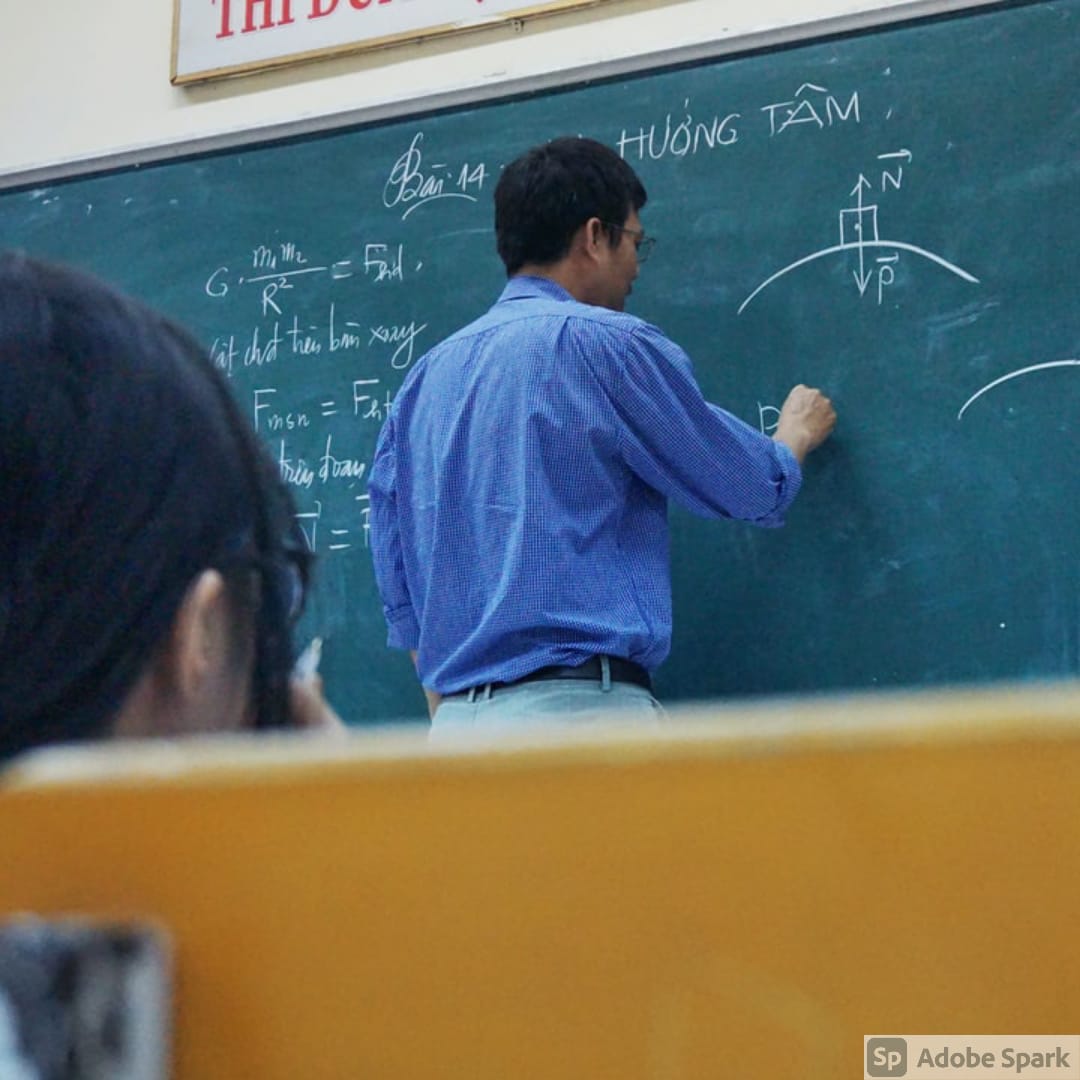 THI
Bài 14 HƯỚNG TÂM
G. m₁m₂ / R² = Fhd
vật chất trên bàn xoay
Fmsn = Fht
trên đoạn
N =
N
P
P
Sp Adobe Spark